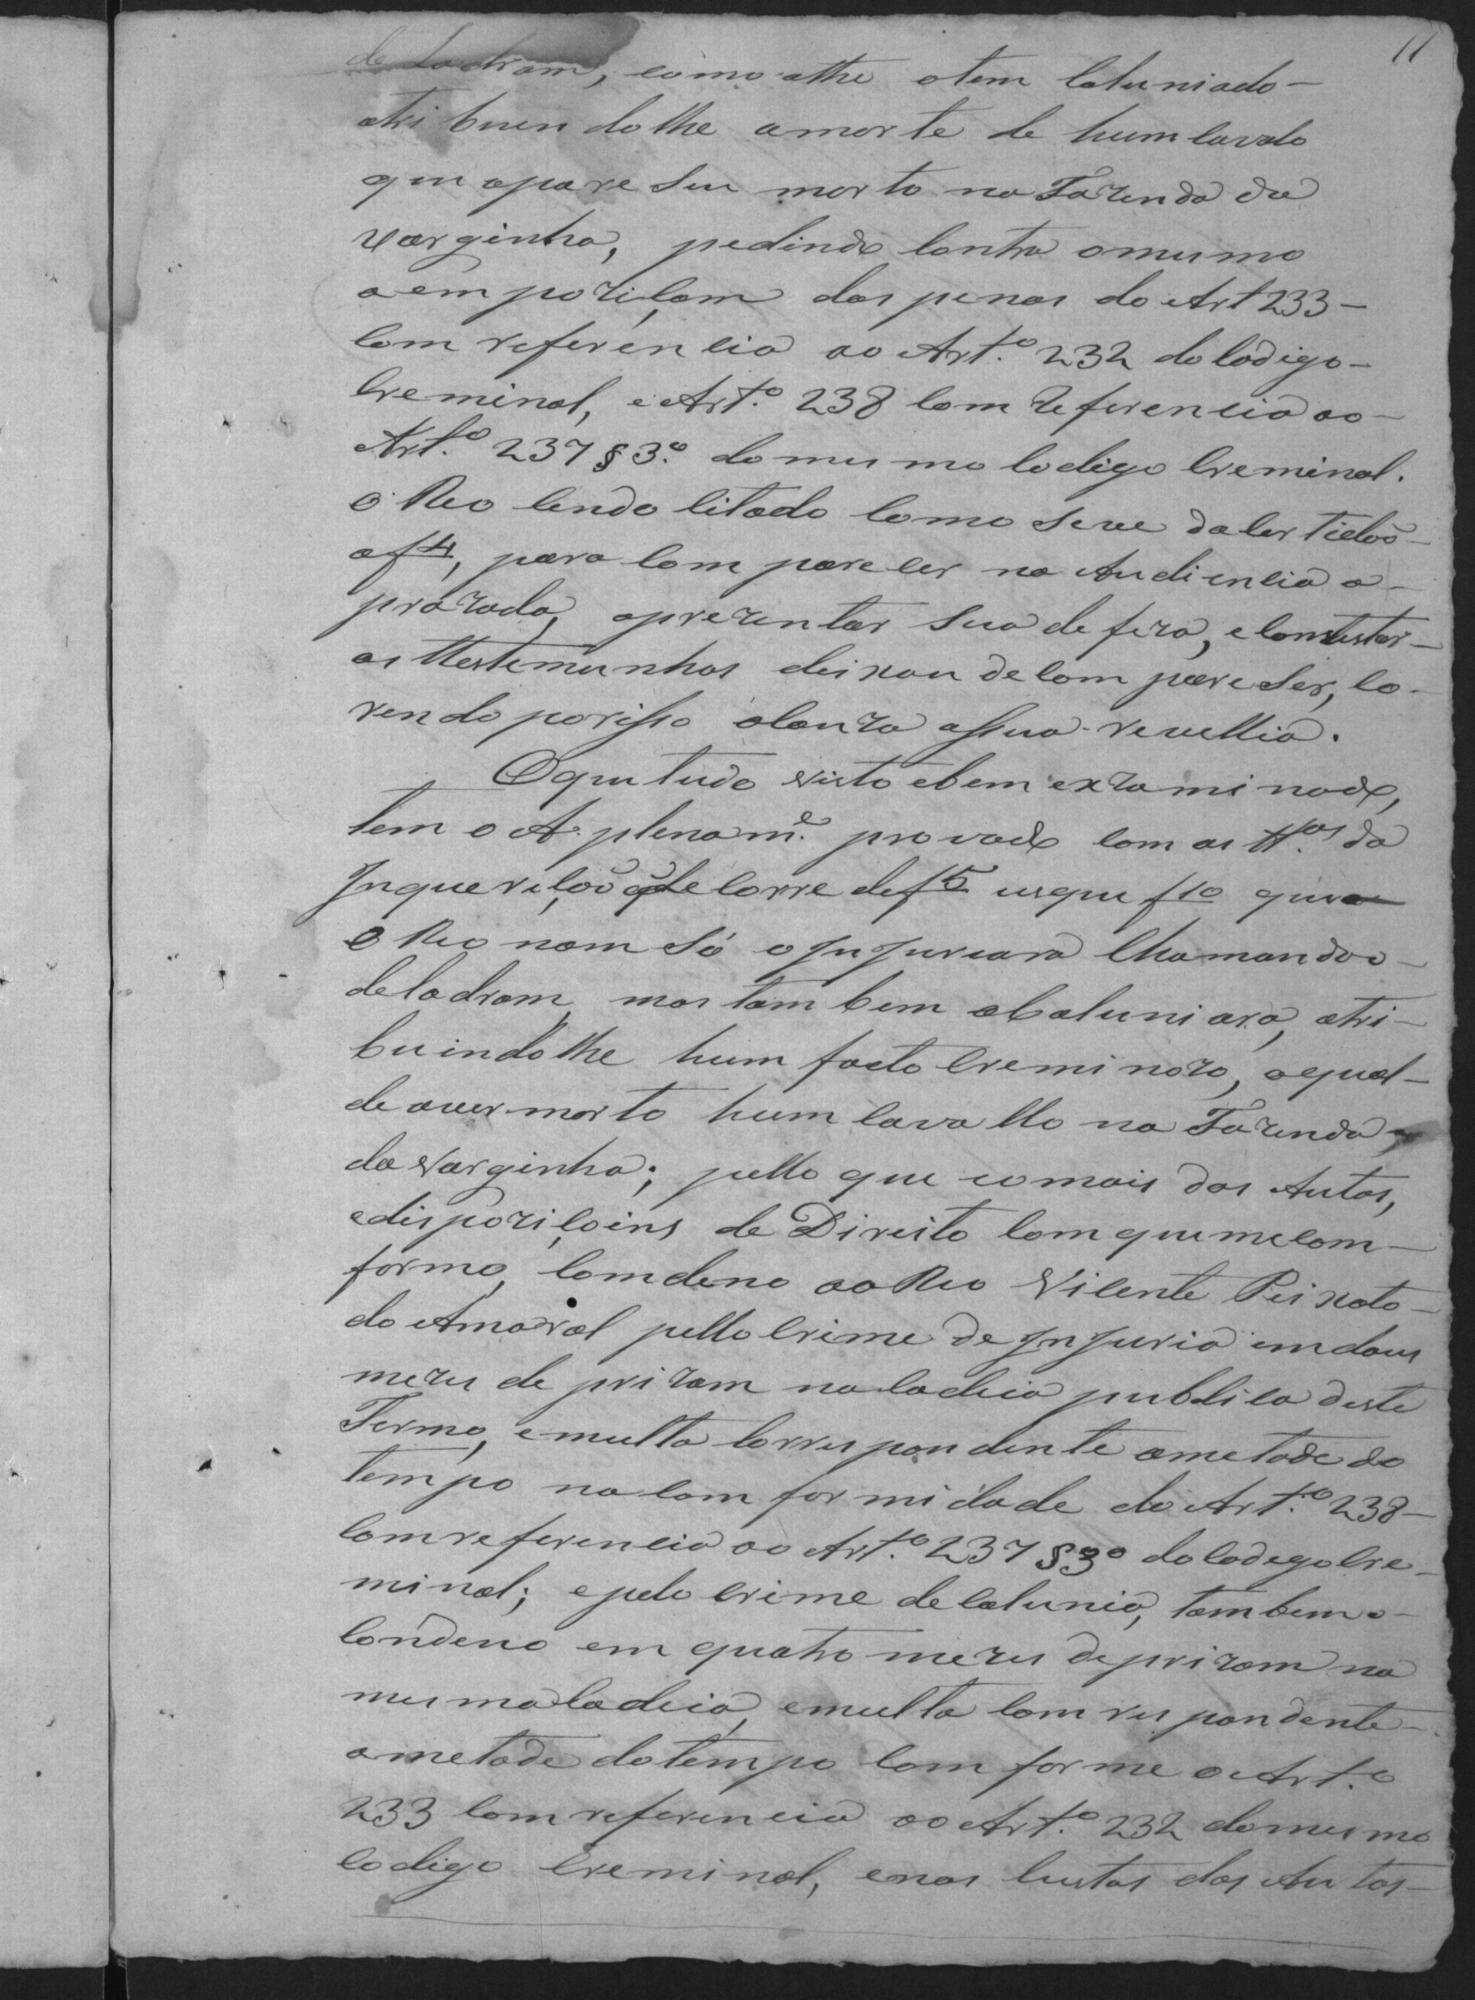 11
de Ladram, como athe otem Caluniado-
atribuindolhe amorte de hum cavalo
que apareseu morto na Fazenda da
Varginha, pedindo contra omesmo
aemposiçam das penas do Art 233-
Com referencia ao Art.º 232 do Codigo-
Creminal, e Art.º 238 com referencia ao-
Art.º 237 § 3.º do mesmo Codigo Creminal.
o Reo sendo Citado como seve da Certidão-
af 4, para Comparecer na Audiencia a-
prazada, aprezentar Sua defeza, e Contestar-
as ttestemunhas deixou deCompareser, Co-
rendo porisso a Cauza assua revellia.
Oque tudo visto ebem examinado,
tem o A. plenam.e provado com as tt.as da
Inquerição que Corre def 5 usque f 10 que
o Reo nam Só o Injuriara Chamandoo-
deLadram, mas tambem aCaluniara, atri-
buindolhe hum facto Creminozo, aqual-
de aver morto hum Cavallo na Fazenda
da Varginha; pello que eomais dos Autos,
edispoziçoins de Direito Com que meCom-
formo, Comdeno ao Reo Vicente Peixoto-
do Amaral pello Crime de Injuria em dous
mezes de prizam na Cadeia publica deste
Termo, emulta Correspondente ametade do
tempo na Comformidade do Art.º 238-
Com referencia ao Art.º 237 § 3º do Codego Cre-
minal; epelo Crime de Calunia, tambem o-
Condeno em quatro mezes deprizam na
mesma Cadeia, emulta Comrespondente-
ametade dotempo Comforme o Art.º
233 Com referencia ao Art.º 232 do mesmo
Codigo Creminal, enas Custas dos Autos-